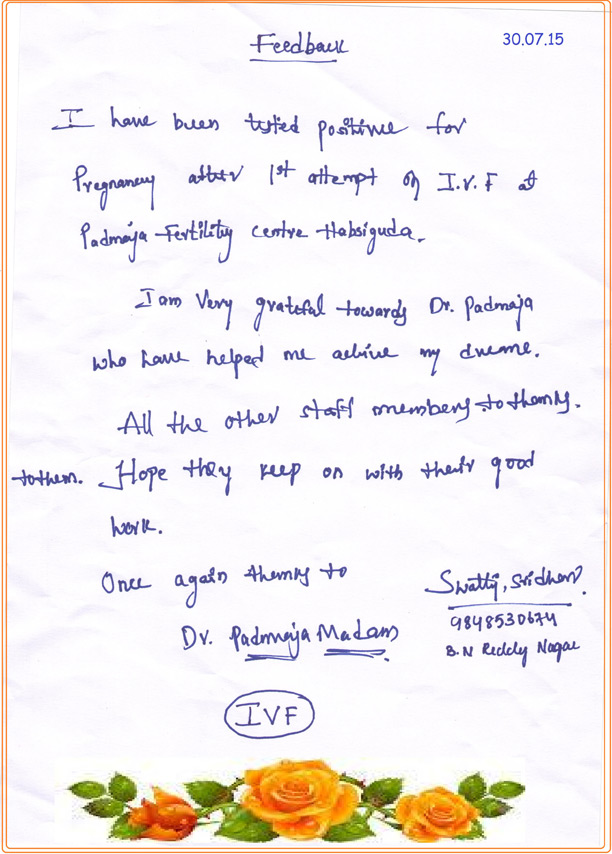 Feedback
30.07.15
I have been tested positive for
Pregnancy after 1st attempt of I.V.F at
Padmaja Fertility centre Habsiguda.
I am Very grateful towards Dr. Padmaja
who have helped me achive my dreame.
All the other staff members to thanks.
to them. Hope they keep on with their good
work.
Once again thanks to
Dr. Padmaja Madam
Swathi, Sridhar.
9848530674
B.N Reddy Nagar
IVF